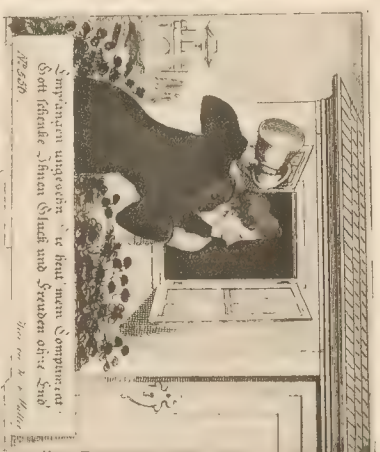 Empfangen ungesehn Sie heut' mein Compliment.
Gott schenke Ihnen Glück und Freuden ohne End'
Nº 530. Müller